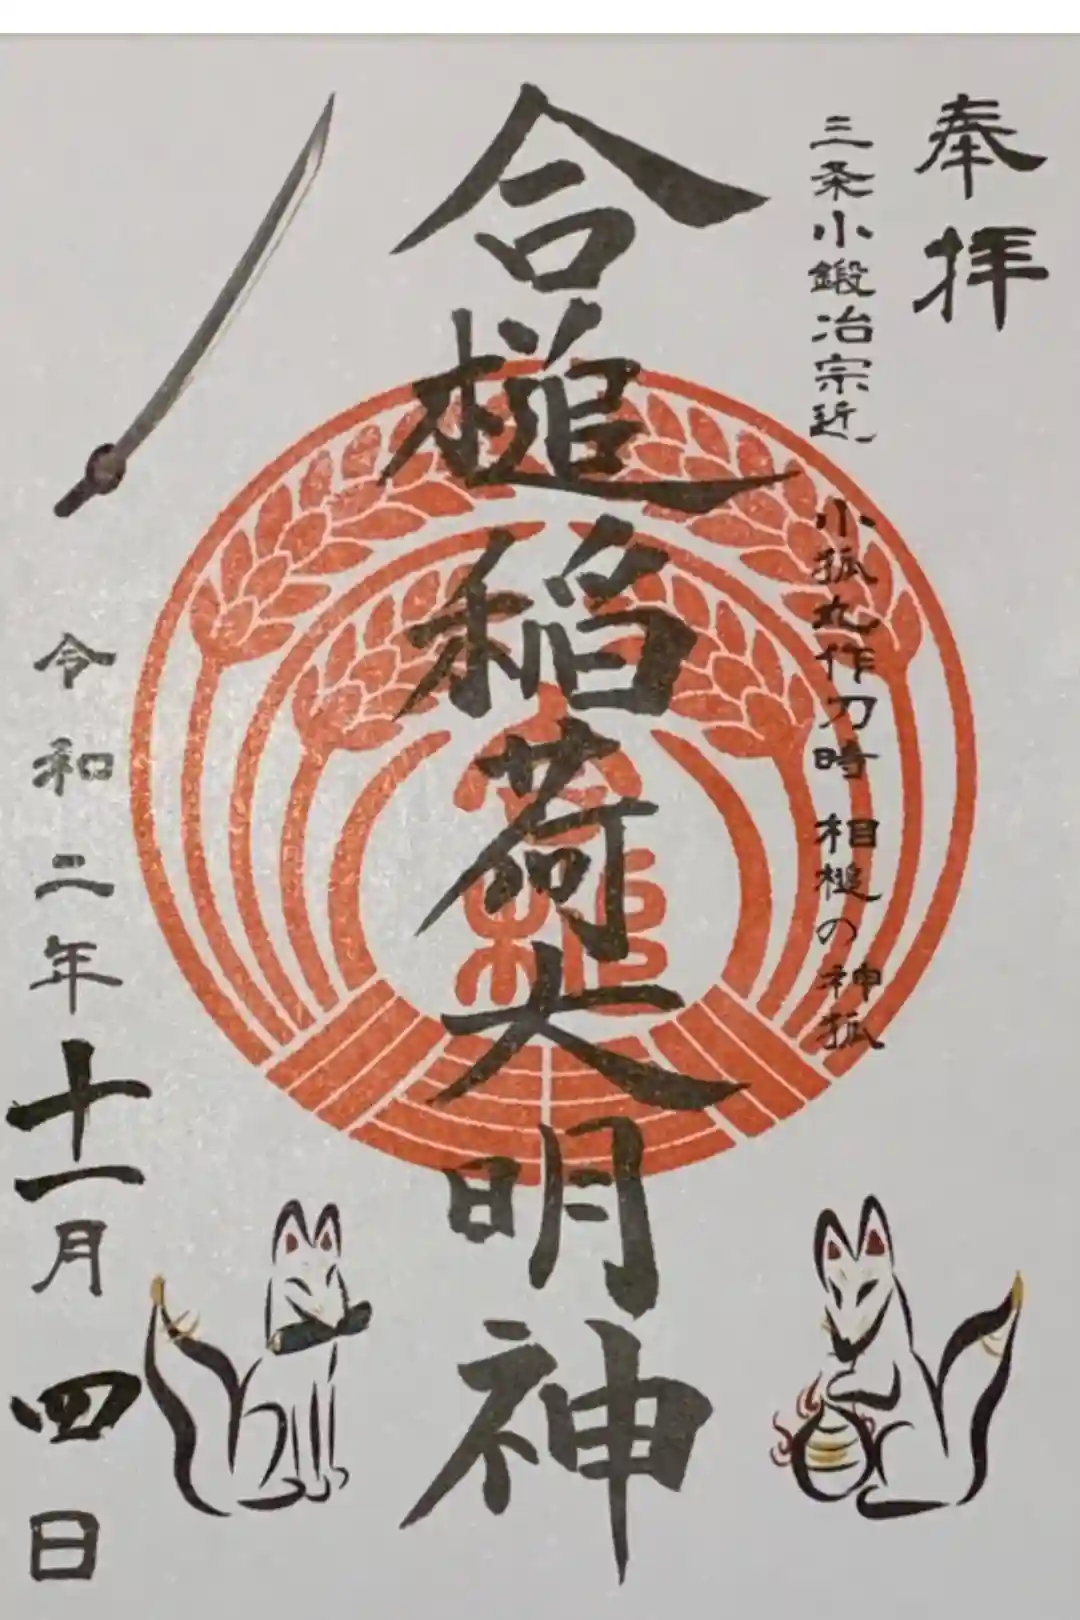 奉拝
三条小鍛冶宗近
小狐丸作刀時 相槌の神狐
合槌稲荷大明神
令和二年十一月四日